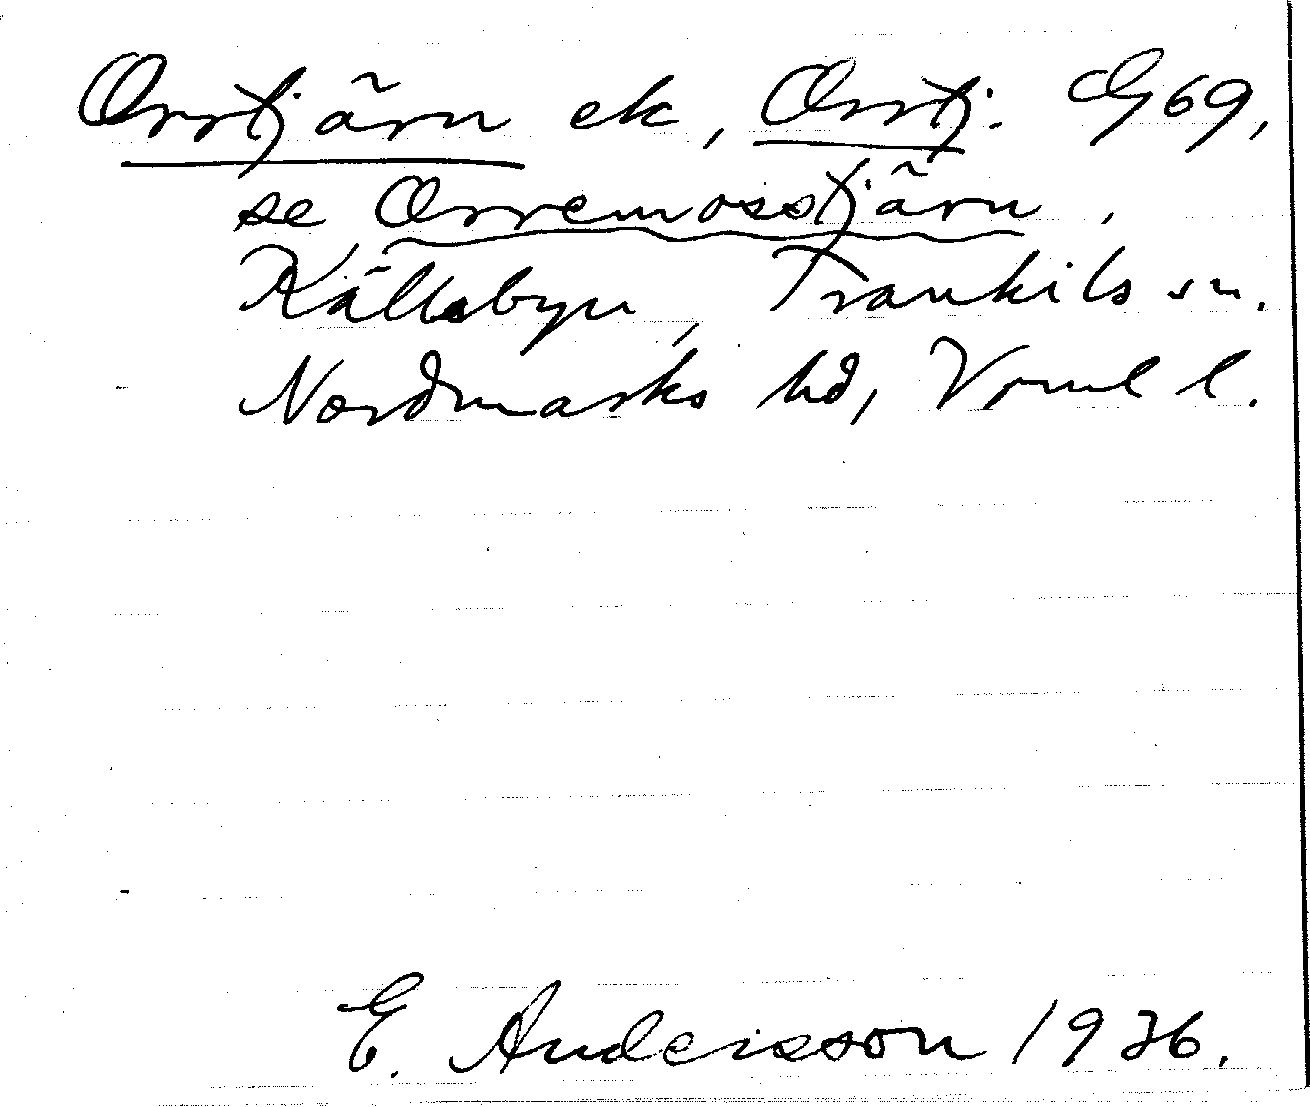 Orrtjärn ek, Orrtj. G69,
se Orremosstjärn,
Källsbyn, Trankils sn.
Nordmarks hd, Vrml l.
E. Andersson 1936.